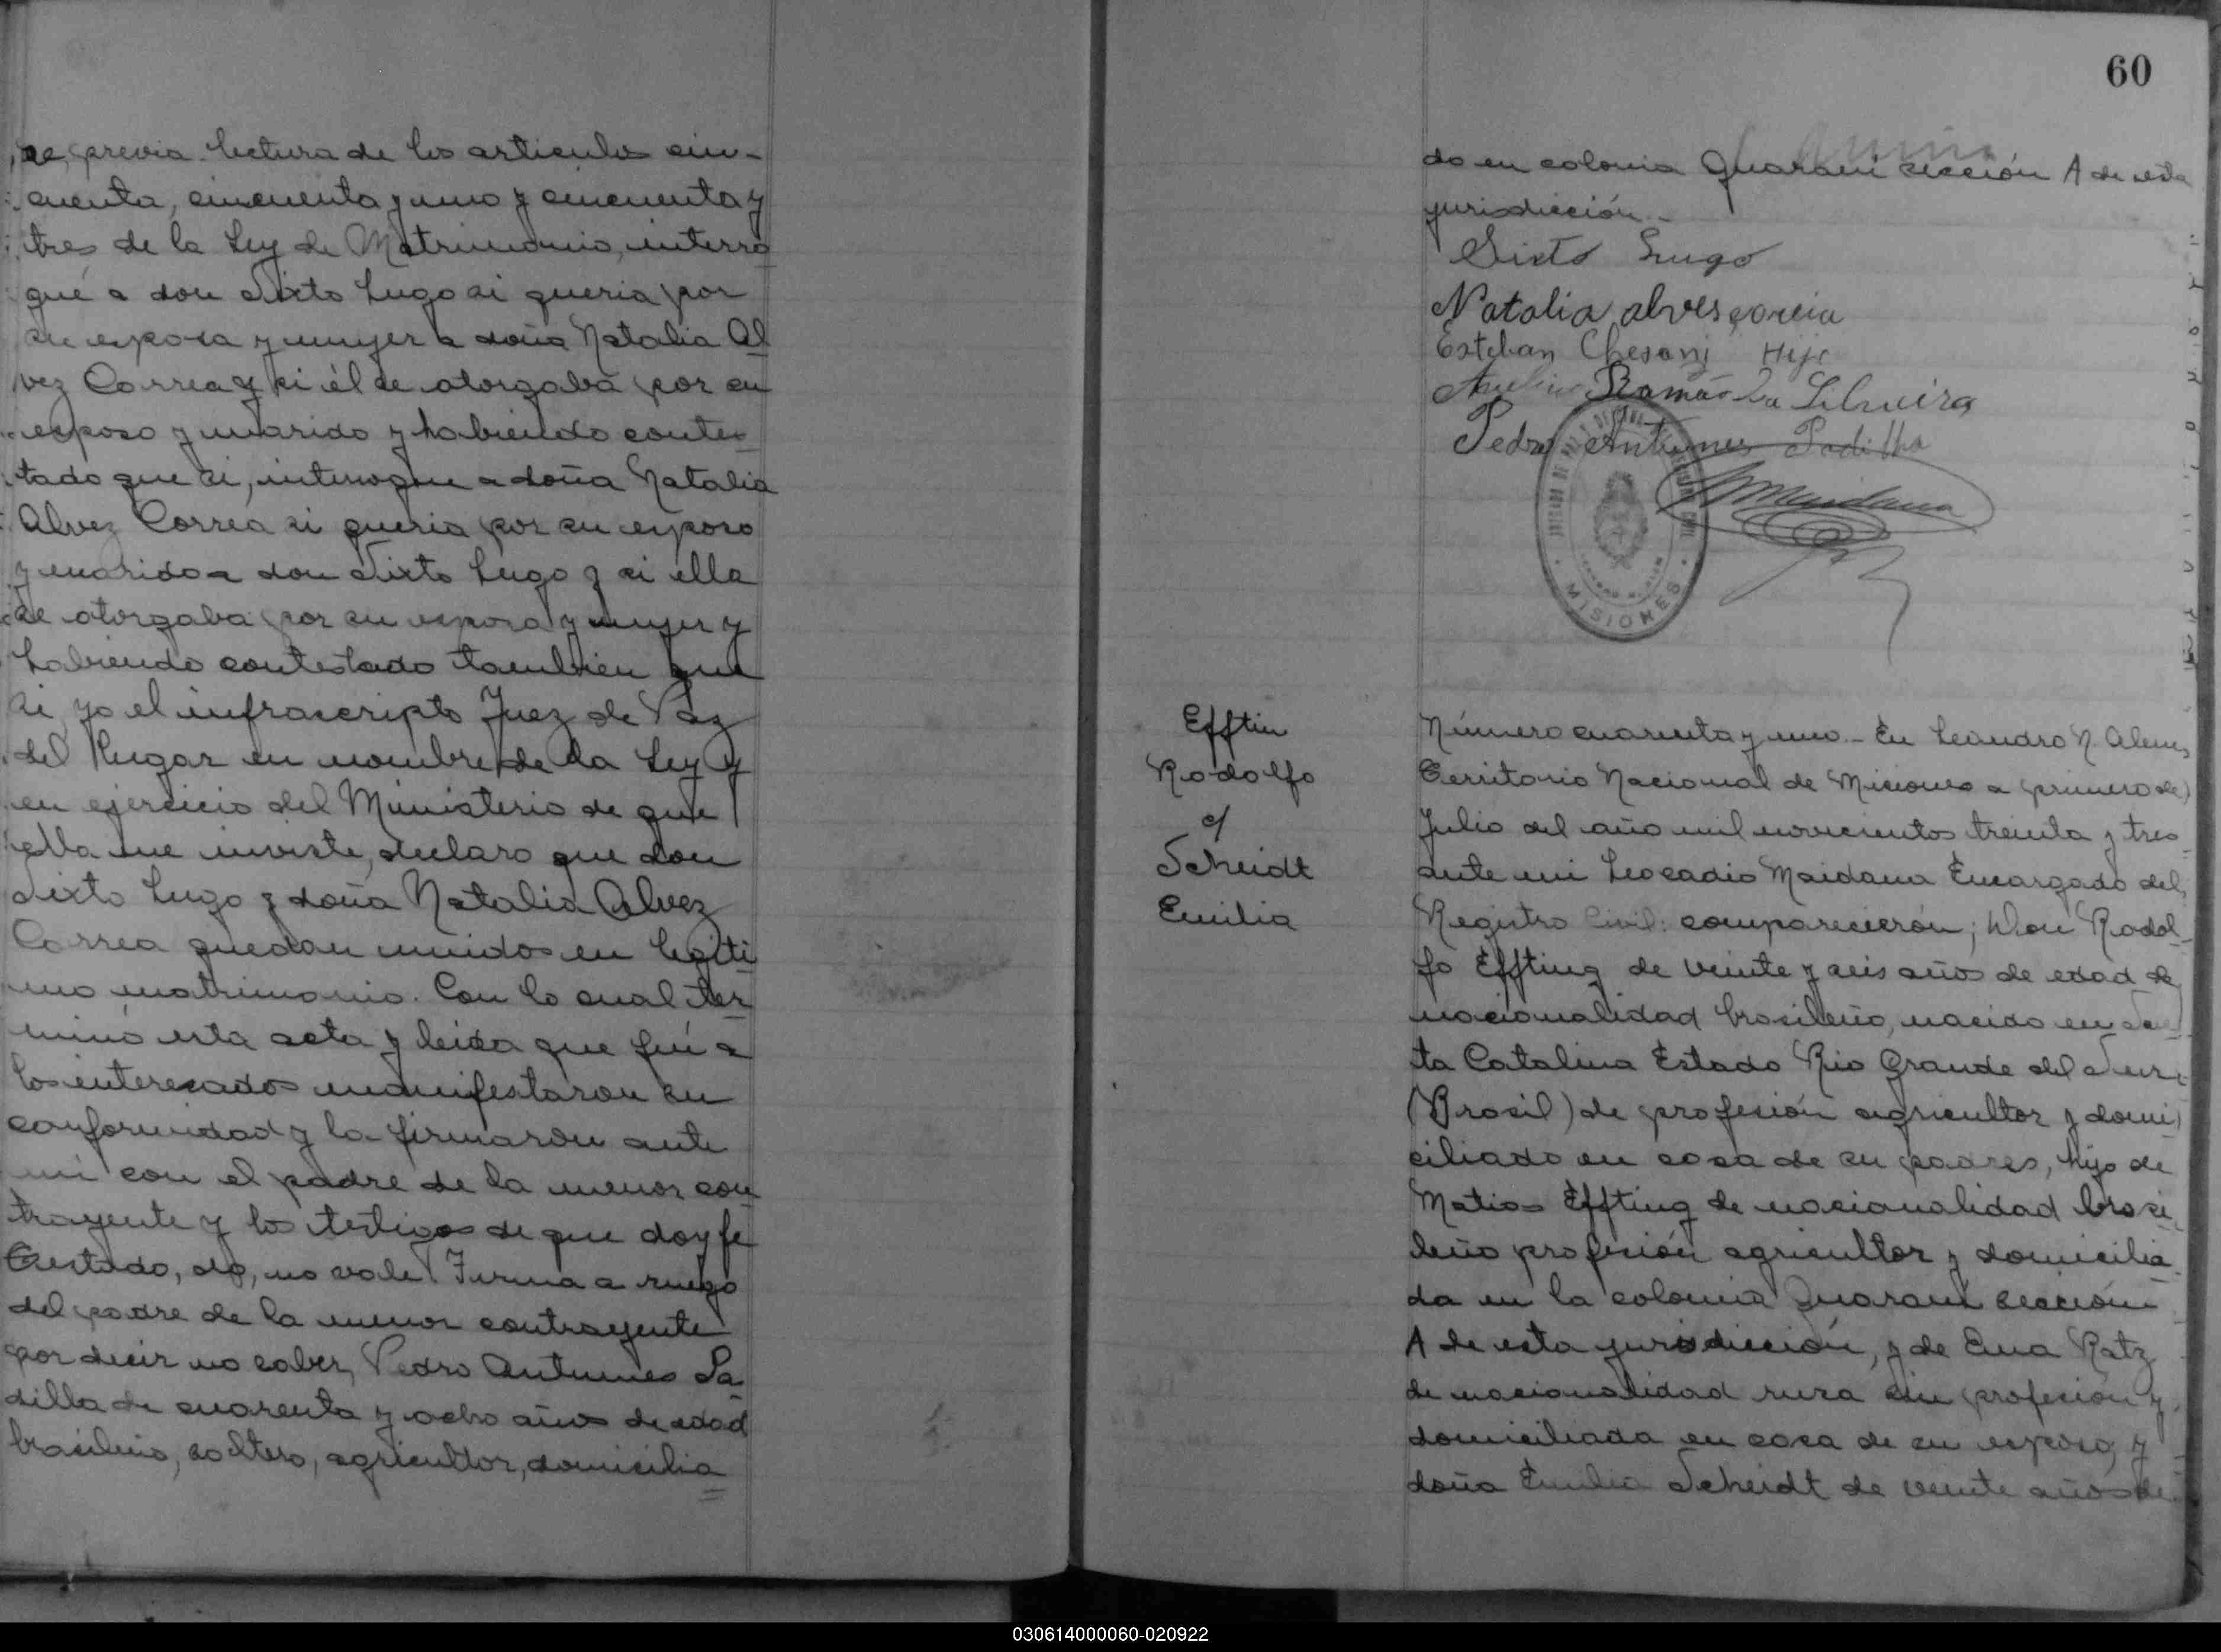 se, previa lectura de los articulos cin-
cuenta, cincuenta y uno y cincuenta y
tres de la Ley de Matrimonio, interro
gué a don Sixto Lugo si queria por
su esposa y mujer a doña Natalia Al
vez Correa y si él se otorgaba por su
esposo y marido y habiendo contes
tado que si, interrogue a doña Natalia
Alvez Correa si queria por su esposo
y marido a don Sixto Lugo y si ella
se otorgaba por su esposa y mujer y
habiendo contestado tambien que
si, yo el infrascripto Juez de Paz
del lugar en nombre de la Ley y
en ejercicio del Ministerio de que
ella me inviste, declaro que don
Sixto Lugo y doña Natalia Alvez
Correa quedan unidos en legiti
mo matrimonio. Con lo cual ter
minó esta acta y leida que fué a
los interesados manifestaron su
conformidad y la firmaron ante
mi con el padre de la menor con
trayente y los testigos de que doy fe
Testado, do, no vale. Firma a ruego
del padre de la menor contrayente
por decir no saber, Pedro Antunes Pa
dilla de cuarenta y ocho años de edad
brasileño, soltero, agricultor, domicilia
60
do en colonia Guarani sección A de esta
jurisdicción.-
Sixto Lugo
Natalia alves correia
Esteban Chesani Hijo
Ramão da Silveira
Pedro Antunes Padilha
MISIONES
Efftin
Rodolfo
c/
Scheidt
Emilia
Número cuarenta y uno.- En Leandro N. Alem,
Territorio Nacional de Misiones a primero de
Julio del año mil novecientos treinta y tres
ante mi Leocadio Maidana Encargado del
Registro Civil: comparecierón; Don Rodol-
fo Effting de veinte y seis años de edad de
nacionalidad brasileño, nacido en San
ta Catalina Estado Rio Grande del Sur
(Brasil) de profesión agricultor y domi
ciliado en casa de su padres, hijo de
Matias Effting de nacionalidad brasi
leño profesión agricultor y domicilia
da en la colonia Guarani sección
A de esta jurisdicción, y de Ema Ratz
de nacionalidad rusa sin profesión y
domiciliada en casa de su esposo, y
doña Emilia Scheidt de veinte años de
030614000060-020922